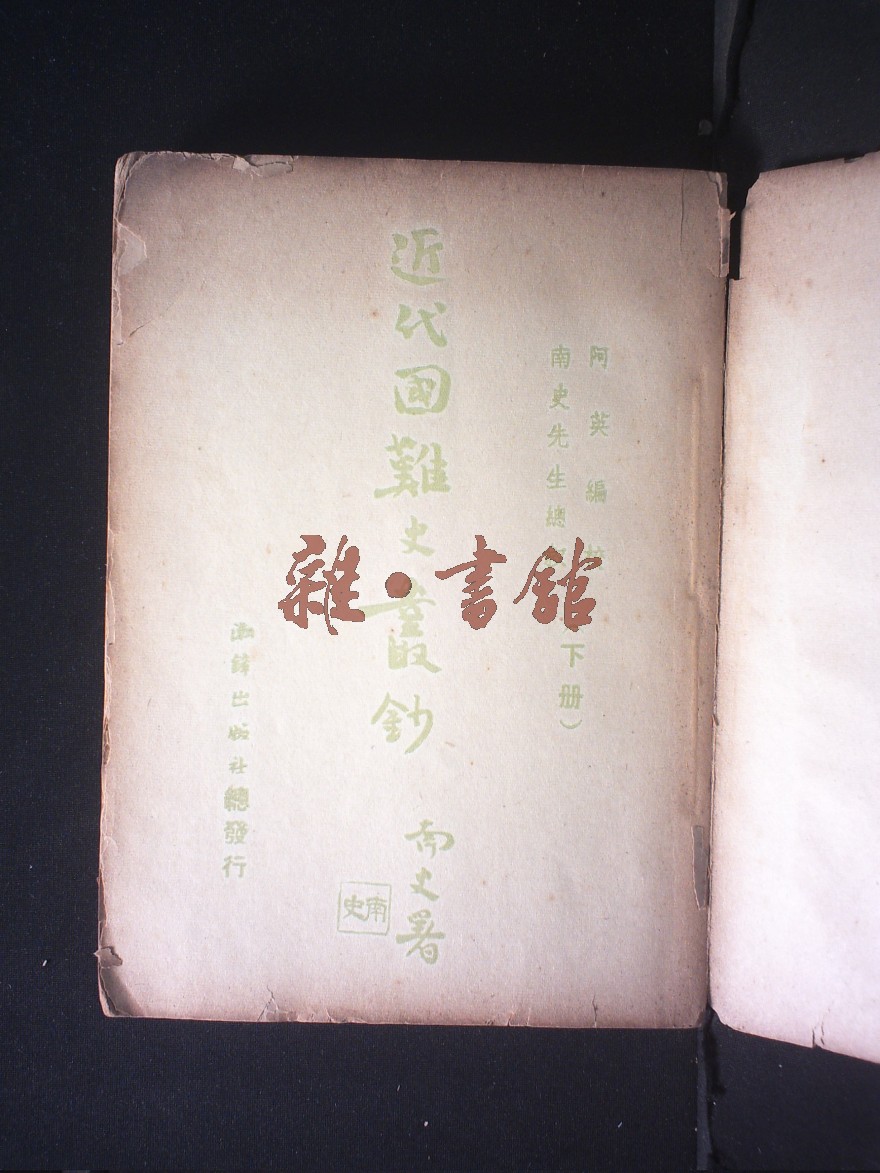 阿英編校
南史先生總
下册）
近代國難史叢鈔
南史署
南史
潮鋒出版社總發行
雜·書館